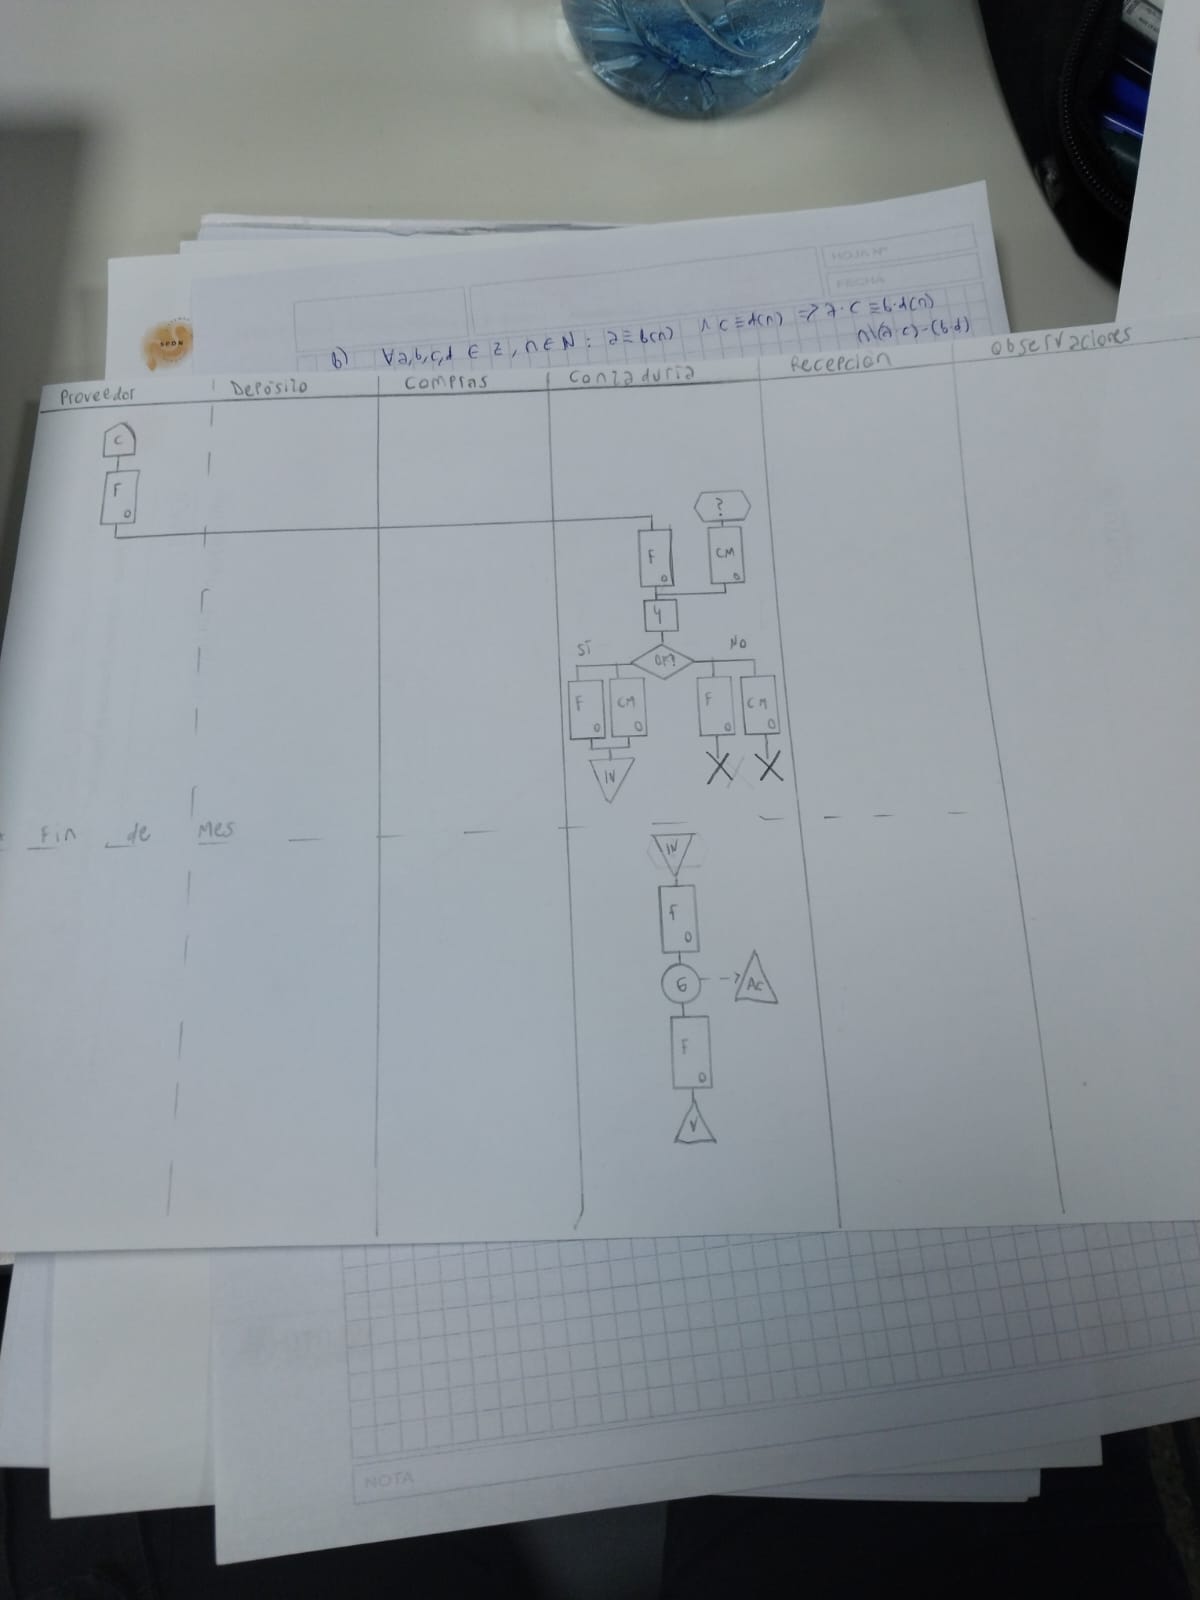 HOJA N°
FECHA
SPDN
b) ∀a,b,c,d ∈ Z, n ∈ N : a ≡ b(n) ∧ c ≡ d(n) => a·c ≡ b·d(n)
n|(a·c)-(b·d)
Proveedor Depósito Compras Contaduría Recepción Observaciones
C
F
0
?
F CM
0 0
4
SÍ OK? NO
F CM F CM
0 0 0 0
IV X X
Fin de Mes
IV
F
0
6 Ac
F
0
V
NOTA